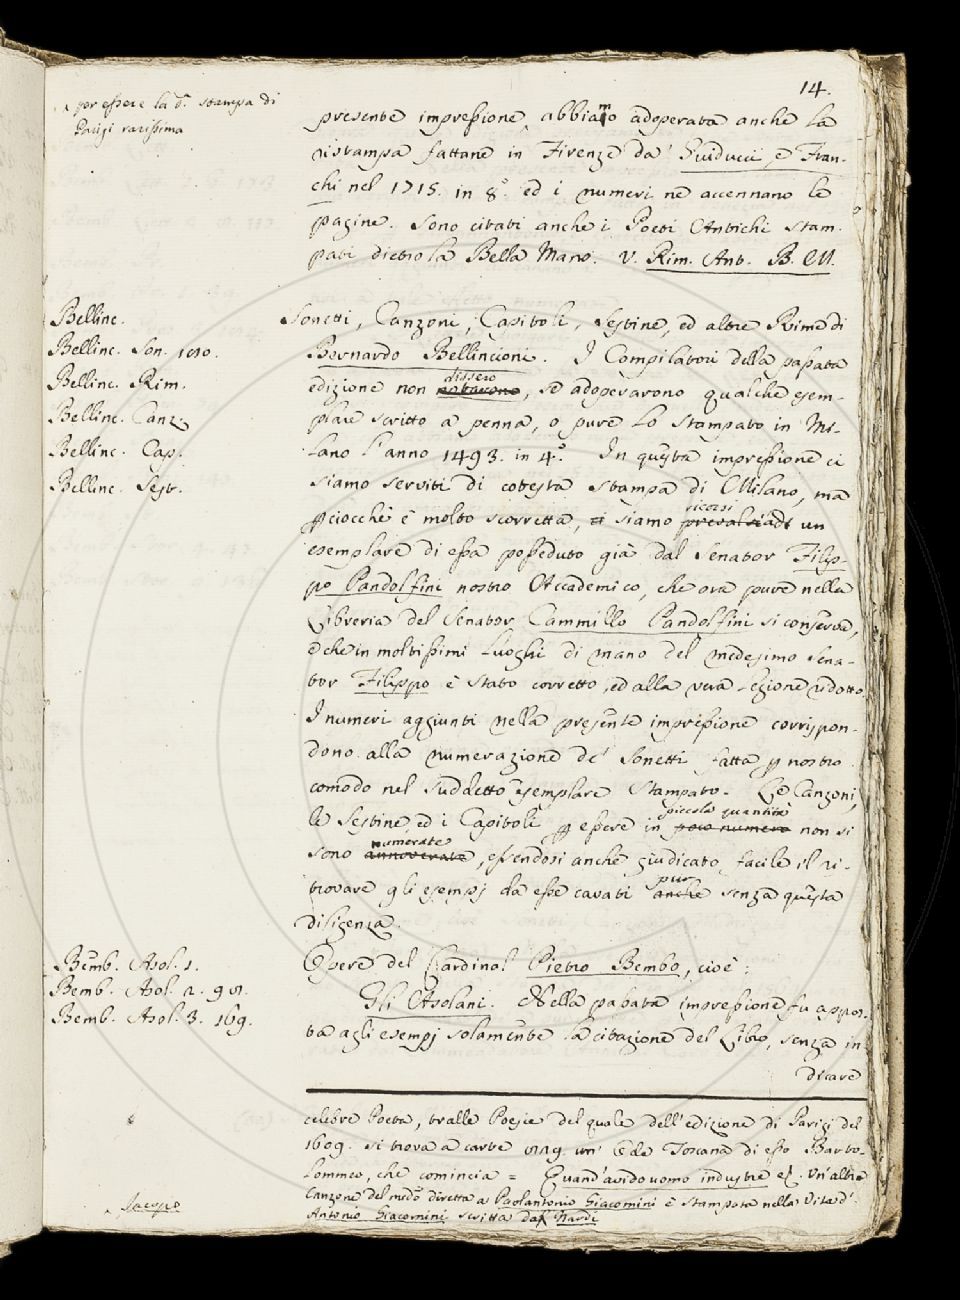 14.
per essere la dª. stampa di
Parigi rarissima
presente impressione abbiamo adoperata anche la
ristampa fattane in Firenze da' Guiducci, e Fran-
chi nel 1715. in 8.º ed i numeri ne accennano le
pagine. Sono citati anche i Poeti Antichi stam-
pati dietro la Bella Mano. V. Rim. Ant. B. M.
Bellinc.
Bellinc. Son. 1010.
Bellinc. Rim.
Bellinc. Canz.
Bellinc. Cap.
Bellinc. Sest.
Sonetti, Canzoni, Capitoli, Sestine, ed altre Rime di
Bernardo Bellincioni. I Compilatori della passata
dissero
edizione non notarono, se adoperarono qualche esem-
plare scritto a penna, o pure lo stampato in Mi-
lano l'anno 1493. in 4.º In questa impressione ci
siamo serviti di cotesta stampa di Milano, ma
ricorsi
perciocchè è molto scorretta, ci siamo prevalsi ad un
esemplare di essa posseduto già dal Senator Filip-
po Pandolfini nostro Accademico, che ora pure nella
Libreria del Senator Cammillo Pandolfini si conserva,
e che in moltissimi luoghi di mano del medesimo Sena-
tor Filippo è stato corretto, ed alla vera lezione ridotto.
I numeri aggiunti nella presente impressione corrispon-
dono alla numerazione de' Sonetti fatta per nostro
comodo nel suddetto esemplare stampato. Le Canzoni,
piccola quantità
le Sestine, ed i Capitoli per essere in poco numero non si
numerate
sono annoverate, essendosi anche giudicato facile il ri-
pur
trovare gli esempj da esse cavati anche senza questa
diligenza.
Bemb. Asol. 1.
Bemb. Asol. 2. 95.
Bemb. Asol. 3. 169.
Opere del Cardinal Pietro Bembo, cioè:
Gli Asolani. Nella passata impressione fu appos-
ta agli esempj solamente la citazione del Libro, senza in-
dicare
celebre Poeta, tralle Poesie del quale dell'edizione di Parigi del
1609. si trova a carte un' Ode Toscana di esso Barto-
lommeo, che comincia = Quand'avido uomo industre &c. Un'altra
Canzone del medº. diretta a Paolantonio Giacomini è stampata nella Vita d'
Antonio Giacomini scritta da Nardi
Jacopo